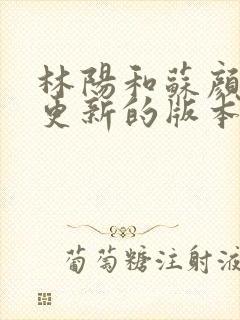 林陽和蘇顔
更新的版本
葡萄糖注射液